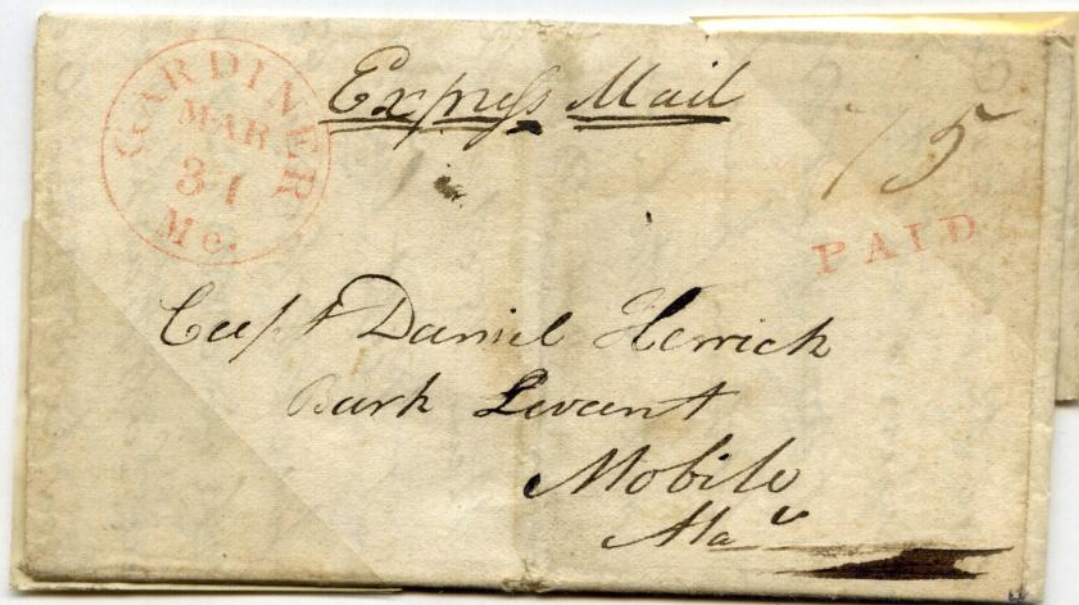 GARDINER
MAR
31
Me.
Express Mail
75
PAID
Capt Daniel Herrick
Bark Levant
Mobile
Ala